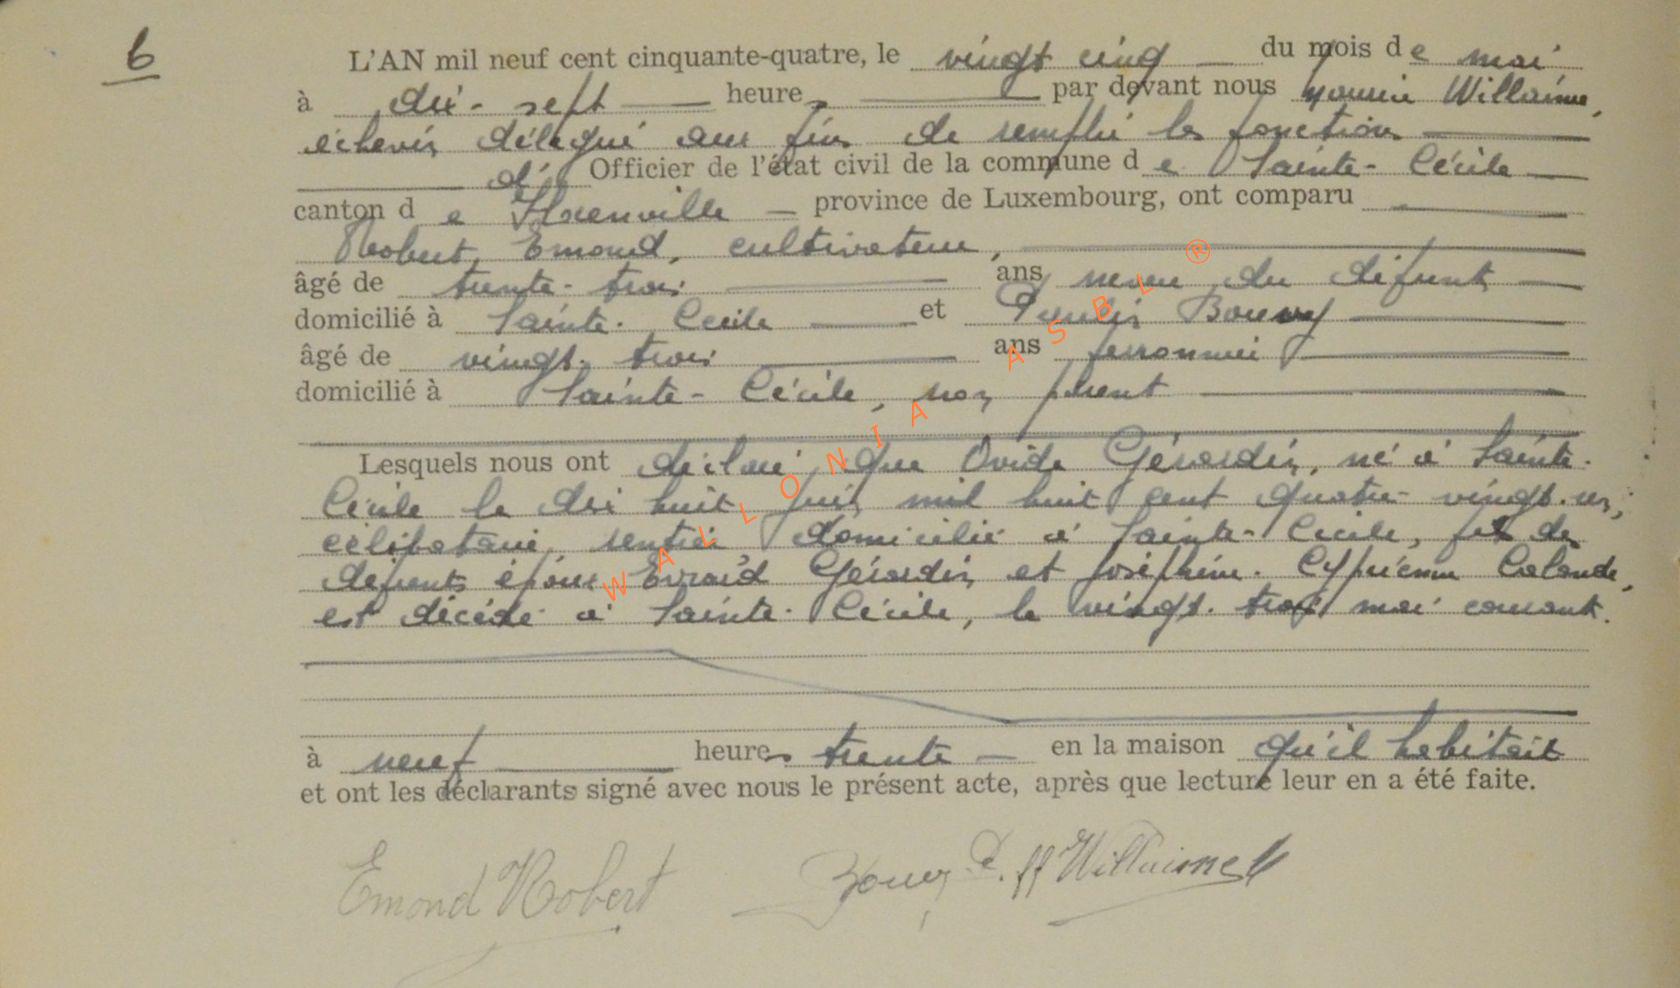 6
L'AN mil neuf cent cinquante-quatre, le vingt cinq du mois de mai
à dix-sept heures par devant nous Willaime,
échevin délégué aux fins de remplir les fonctions
d' Officier de l'état civil de la commune de Sainte-Cécile
canton de Florenville province de Luxembourg, ont comparu
Robert Emond, cultivateur,
âgé de trente-trois ans neveu du défunt
domicilié à Sainte-Cécile et Bouvy
âgé de vingt-trois ans ferronnier
domicilié à Sainte-Cécile, non parent
Lesquels nous ont déclaré que Ovide Gérardin, né à Sainte-
Cécile le dix huit juin mil huit cent quatre-vingt-un,
célibataire, rentier domicilié à Sainte-Cécile, fils des
défunts époux Evrard Gérardin et Joséphine-Cyprienne Lalande,
est décédé à Sainte-Cécile, le vingt-trois mai courant.
à neuf heures trente en la maison qu'il habitait
et ont les déclarants signé avec nous le présent acte, après que lecture leur en a été faite.
Emond Robert Bouvy Willaime
WALLONIA ASBL ®